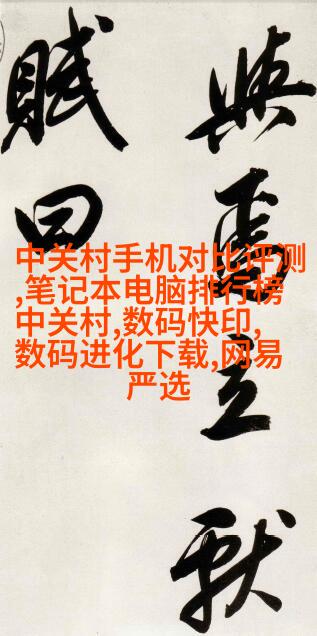 與立
賦曰
中关村手机对比评测
,笔记本电脑排行榜
中关村,数码快印,
数码进化下载,网易
严选